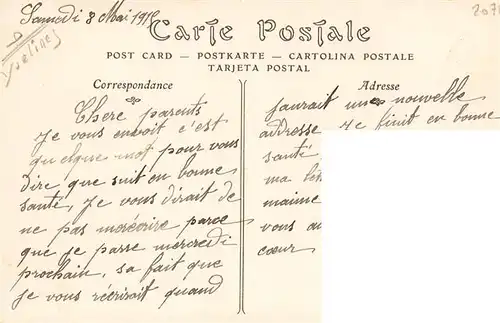 Samedi 8 Mai 191
Yvelines
207
Carte Postale
POST CARD — POSTKARTE — CARTOLINA POSTALE
TARJETA POSTAL
Correspondance
Chere parents
Je vous envoit c'est
quelque mot pour vous
dire que suit en bonne
santé, Je vous dirait de
ne pas morécrire parce
que je passe mercredi
prochain, sa fait que
je vous réécrirait quand
Adresse
jaurait une nouvelle
addresse Je finit en bonne
santé
ma let
maime
vous au
cœur